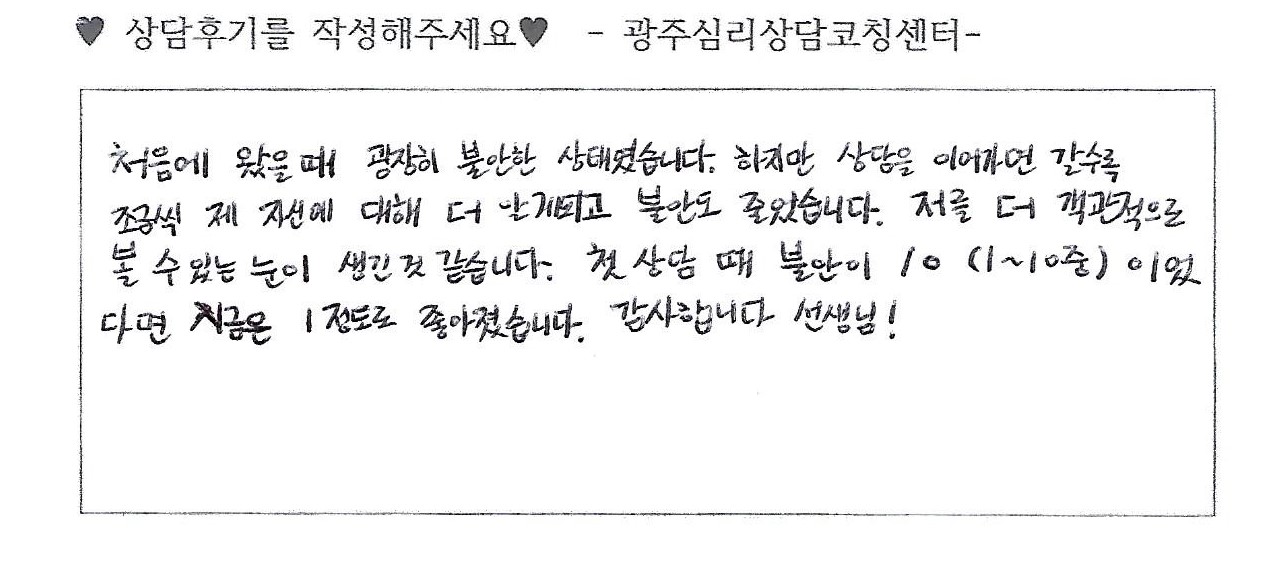 ♥ 상담후기를 작성해주세요♥ - 광주심리상담코칭센터-
처음에 왔을때 굉장히 불안한 상태였습니다. 하지만 상담을 이어가면 갈수록
조금씩 제 자신에 대해 더 알게되고 불안도 줄었습니다. 저를 더 객관적으로
볼 수 있는 눈이 생긴 것 같습니다. 첫 상담 때 불안이 10 (1~10중) 이었
다면 지금은 1 정도로 좋아졌습니다. 감사합니다 선생님!